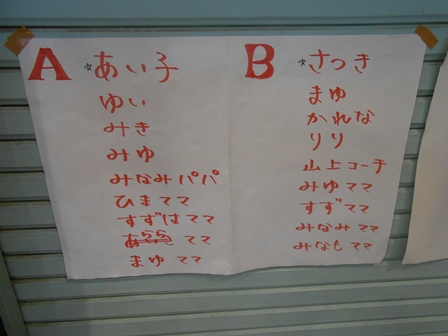 A
☆あい子
ゆい
みき
みゆ
みなみパパ
ひまママ
すずはママ
ママ
まゆママ
B
☆さつき
まゆ
かれな
りり
山上コーチ
みゆママ
すずママ
みなみママ
みなもママ